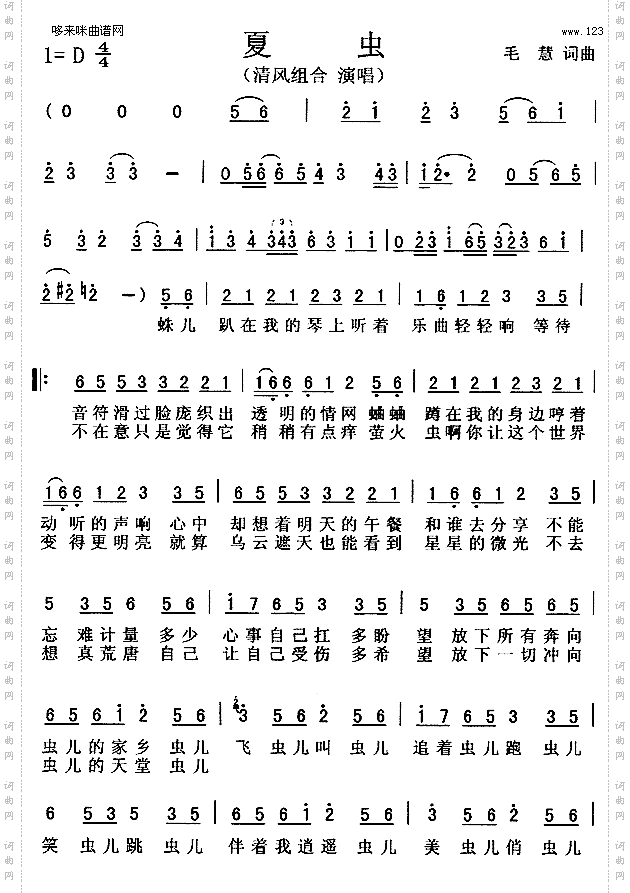 哆来咪曲谱网
www.123
夏 虫
1= D 4/4
毛 慧 词曲
(清风组合 演唱)
(0 0 0 5 6 | 2 1 2 3 | 5 6 6 1 |
2 3 3 3 – | 0 5 6 6 5 4 3 4 3 | 1 2· 0 5 6 5 |
5 3 2 3 3 4 | 1 3 4 3 4 3 6 3 1 1 | 0 2 3 1 6 5 3 2 3 6 1 |
2 #2 ♮2 –) 5 6 | 2 1 2 1 2 3 2 1 | 1 6 1 2 3 3 5 |
蛛儿 趴在我的琴上听着 乐曲轻轻响 等待
6 5 5 3 3 2 2 1 | 1 6 6 6 1 2 5 6 | 2 1 2 1 2 3 2 1 |
音符滑过脸庞织出 透明的情网 蛐蛐 蹲在我的身边哼着
不在意只是觉得它 稍稍有点痒 萤火 虫啊你让这个世界
1 6 6 1 2 3 3 5 | 6 5 5 3 3 2 2 1 | 1 6 1 2 3 5 |
动听的声响 心中 却想着明天的午餐 和谁去分享 不能
变得更明亮 就算 乌云遮天也能看到 星星的微光 不去
5 3 5 6 5 6 | 1 7 6 5 3 3 5 | 5 3 5 6 5 6 5 |
忘 难计量 多少 心事自己扛 多盼 望 放下所有奔向
想 真荒唐 自己 让自己受伤 多希 望 放下一切冲向
6 5 6 1 2 5 6 | 3 5 6 2 5 6 | 1 7 6 5 3 3 5 |
虫儿的家乡 虫儿 飞 虫儿叫 虫儿 追着虫儿跑 虫儿
虫儿的天堂 虫儿
6 5 3 5 3 5 | 6 5 6 1 2 5 6 | 3 5 6 2 5 6 |
笑 虫儿跳 虫儿 伴着我逍遥 虫儿 美 虫儿俏 虫儿